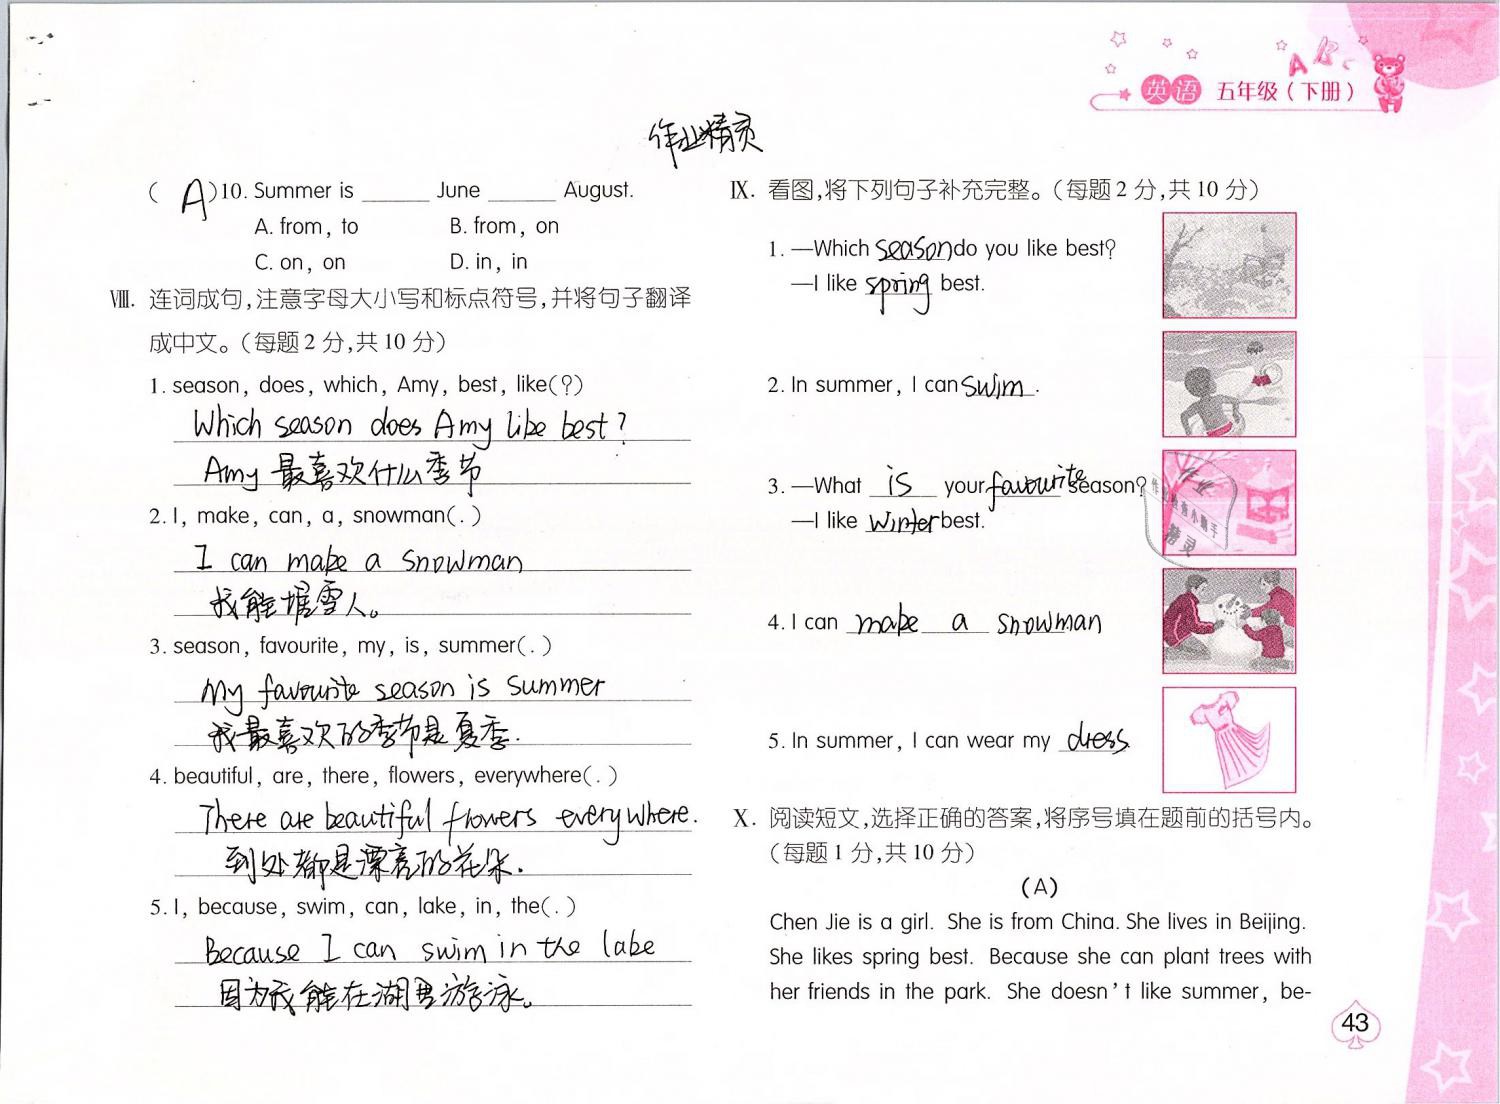 英语 五年级（下册）
作业精灵
( A )10. Summer is ______ June ______ August.
A. from, to B. from, on
C. on, on D. in, in
Ⅷ. 连词成句,注意字母大小写和标点符号,并将句子翻译
成中文。(每题2分,共10分)
1. season, does, which, Amy, best, like(?)
Which season does Amy like best?
Amy 最喜欢什么季节
2. I, make, can, a, snowman(.)
I can make a snowman
我能堆雪人。
3. season, favourite, my, is, summer(.)
My favourite season is summer
我最喜欢的季节是夏季.
4. beautiful, are, there, flowers, everywhere(.)
There are beautiful flowers everywhere.
到处都是漂亮的花朵.
5. I, because, swim, can, lake, in, the(.)
Because I can swim in the lake
因为我能在湖里游泳。
Ⅸ. 看图,将下列句子补充完整。(每题2分,共10分)
1. —Which season do you like best?
—I like spring best.
2. In summer, I can swim.
3. —What is your favourite season?
—I like winter best.
4. I can make a snowman
5. In summer, I can wear my dress.
Ⅹ. 阅读短文,选择正确的答案,将序号填在题前的括号内。
(每题1分,共10分)
(A)
Chen Jie is a girl. She is from China. She lives in Beijing.
She likes spring best. Because she can plant trees with
her friends in the park. She doesn't like summer, be-
43